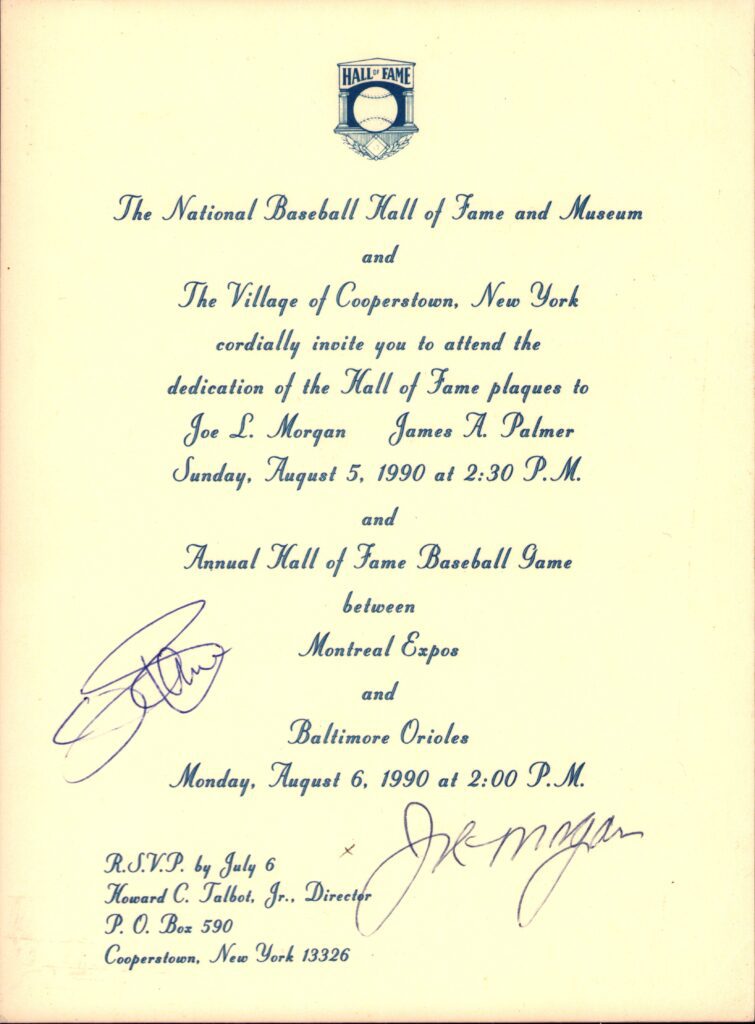 HALL OF FAME
The National Baseball Hall of Fame and Museum
and
The Village of Cooperstown, New York
cordially invite you to attend the
dedication of the Hall of Fame plaques to
Joe L. Morgan James A. Palmer
Sunday, August 5, 1990 at 2:30 P.M.
and
Annual Hall of Fame Baseball Game
between
Montreal Expos
and
Baltimore Orioles
Monday, August 6, 1990 at 2:00 P.M.
Joe Morgan
R.S.V.P. by July 6
Howard C. Talbot, Jr., Director
P. O. Box 590
Cooperstown, New York 13326